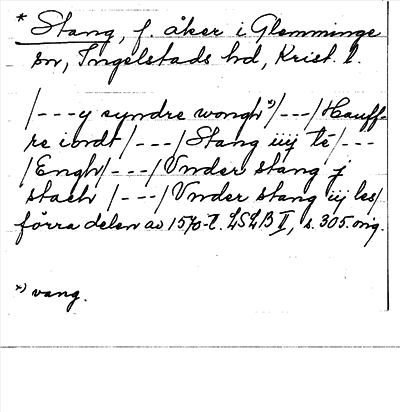 * Stang, f. åker i Glemminge
sn, Ingelstads hd, Krist. l.
/---y syndre wongh *)/---/Hauff-
re iordt/---/Stang iiij te/---
/Engh/---/Vnder stang j
stach /---/Vnder stang iij les/
förra delen av 1570-t. LSLB II, s. 305. orig.
*) vang.